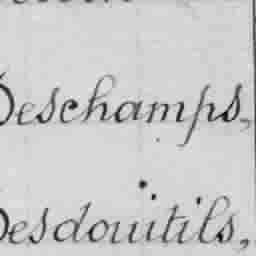 Deschamps,
Desdouitils,